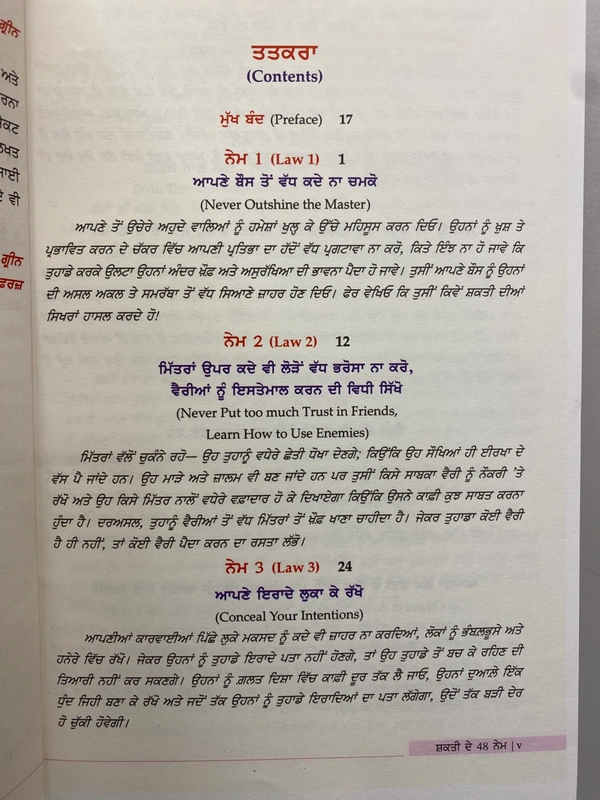 ਗ੍ਰੀਨ
ਅਤੇ
ਰਨਾ
ਖਤ
ਵੀ
ਗ੍ਰੀਨ
ਤਤਕਰਾ
(Contents)
ਮੁੱਖ ਬੰਦ (Preface) 17
ਨੇਮ 1 (Law 1) 1
ਆਪਣੇ ਬੌਸ ਤੋਂ ਵੱਧ ਕਦੇ ਨਾ ਚਮਕੋ
(Never Outshine the Master)
ਆਪਣੇ ਤੋਂ ਉਚੇਰੇ ਅਹੁਦੇ ਵਾਲਿਆਂ ਨੂੰ ਹਮੇਸ਼ਾਂ ਖੁਲ੍ਹ ਕੇ ਉੱਚੇ ਮਹਿਸੂਸ ਕਰਨ ਦਿਓ। ਉਹਨਾਂ ਨੂੰ ਖ਼ੁਸ਼ ਤੇ
ਪ੍ਰਭਾਵਿਤ ਕਰਨ ਦੇ ਚੱਕਰ ਵਿੱਚ ਆਪਣੀ ਪ੍ਰਤਿਭਾ ਦਾ ਹੱਦੋਂ ਵੱਧ ਪ੍ਰਗਟਾਵਾ ਨਾ ਕਰੋ, ਕਿਤੇ ਇੰਝ ਨਾ ਹੋ ਜਾਵੇ ਕਿ
ਤੁਹਾਡੇ ਕਰਕੇ ਉਲਟਾ ਉਹਨਾਂ ਅੰਦਰ ਖ਼ੌਫ਼ ਅਤੇ ਅਸੁਰੱਖਿਆ ਦੀ ਭਾਵਨਾ ਪੈਦਾ ਹੋ ਜਾਵੇ। ਤੁਸੀਂ ਆਪਣੇ ਬੌਸ ਨੂੰ ਉਹਨਾਂ
ਦੀ ਅਸਲ ਅਕਲ ਤੇ ਸਮਰੱਥਾ ਤੋਂ ਵੱਧ ਸਿਆਣੇ ਜ਼ਾਹਰ ਹੋਣ ਦਿਓ। ਫੇਰ ਵੇਖਿਓ ਕਿ ਤੁਸੀਂ ਕਿਵੇਂ ਸ਼ਕਤੀ ਦੀਆਂ
ਸਿਖਰਾਂ ਹਾਸਲ ਕਰਦੇ ਹੋ!
ਨੇਮ 2 (Law 2) 12
ਮਿੱਤਰਾਂ ਉਪਰ ਕਦੇ ਵੀ ਲੋੜੋਂ ਵੱਧ ਭਰੋਸਾ ਨਾ ਕਰੋ,
ਵੈਰੀਆਂ ਨੂੰ ਇਸਤੇਮਾਲ ਕਰਨ ਦੀ ਵਿਧੀ ਸਿੱਖੋ
(Never Put too much Trust in Friends,
Learn How to Use Enemies)
ਮਿੱਤਰਾਂ ਵੱਲੋਂ ਚੁਕੰਨੇ ਰਹੋ— ਉਹ ਤੁਹਾਨੂੰ ਵਧੇਰੇ ਛੇਤੀ ਧੋਖਾ ਦੇਣਗੇ; ਕਿਉਂਕਿ ਉਹ ਸੌਖਿਆਂ ਹੀ ਈਰਖਾ ਦੇ
ਵੱਸ ਪੈ ਜਾਂਦੇ ਹਨ। ਉਹ ਮਾੜੇ ਅਤੇ ਜ਼ਾਲਮ ਵੀ ਬਣ ਜਾਂਦੇ ਹਨ ਪਰ ਤੁਸੀਂ ਕਿਸੇ ਸਾਬਕਾ ਵੈਰੀ ਨੂੰ ਨੌਕਰੀ ’ਤੇ
ਰੱਖੋ ਅਤੇ ਉਹ ਕਿਸੇ ਮਿੱਤਰ ਨਾਲੋਂ ਵਧੇਰੇ ਵਫ਼ਾਦਾਰ ਹੋ ਕੇ ਦਿਖਾਏਗਾ ਕਿਉਂਕਿ ਉਸਨੇ ਕਾਫ਼ੀ ਕੁਝ ਸਾਬਤ ਕਰਨਾ
ਹੁੰਦਾ ਹੈ। ਦਰਅਸਲ, ਤੁਹਾਨੂੰ ਵੈਰੀਆਂ ਤੋਂ ਵੱਧ ਮਿੱਤਰਾਂ ਤੋਂ ਖ਼ੌਫ਼ ਖਾਣਾ ਚਾਹੀਦਾ ਹੈ। ਜੇਕਰ ਤੁਹਾਡਾ ਕੋਈ ਵੈਰੀ
ਹੈ ਹੀ ਨਹੀਂ, ਤਾਂ ਕੋਈ ਵੈਰੀ ਪੈਦਾ ਕਰਨ ਦਾ ਰਸਤਾ ਲੱਭੋ।
ਨੇਮ 3 (Law 3) 24
ਆਪਣੇ ਇਰਾਦੇ ਲੁਕਾ ਕੇ ਰੱਖੋ
(Conceal Your Intentions)
ਆਪਣੀਆਂ ਕਾਰਵਾਈਆਂ ਪਿੱਛੇ ਲੁਕੇ ਮਕਸਦ ਨੂੰ ਕਦੇ ਵੀ ਜ਼ਾਹਰ ਨਾ ਕਰਦਿਆਂ, ਲੋਕਾਂ ਨੂੰ ਭੰਬਲਭੂਸੇ ਅਤੇ
ਹਨੇਰੇ ਵਿੱਚ ਰੱਖੋ। ਜੇਕਰ ਉਹਨਾਂ ਨੂੰ ਤੁਹਾਡੇ ਇਰਾਦੇ ਪਤਾ ਨਹੀਂ ਹੋਣਗੇ, ਤਾਂ ਉਹ ਤੁਹਾਡੇ ਤੋਂ ਬਚ ਕੇ ਰਹਿਣ ਦੀ
ਤਿਆਰੀ ਨਹੀਂ ਕਰ ਸਕਣਗੇ। ਉਹਨਾਂ ਨੂੰ ਗ਼ਲਤ ਦਿਸ਼ਾ ਵਿੱਚ ਕਾਫ਼ੀ ਦੂਰ ਤੱਕ ਲੈ ਜਾਓ, ਉਹਨਾਂ ਦੁਆਲੇ ਇੱਕ
ਧੁੰਦ ਜਿਹੀ ਬਣਾ ਕੇ ਰੱਖੋ ਅਤੇ ਜਦੋਂ ਤੱਕ ਉਹਨਾਂ ਨੂੰ ਤੁਹਾਡੇ ਇਰਾਦਿਆਂ ਦਾ ਪਤਾ ਲੱਗੇਗਾ, ਉਦੋਂ ਤੱਕ ਬੜੀ ਦੇਰ
ਹੋ ਚੁੱਕੀ ਹੋਵੇਗੀ।
ਸ਼ਕਤੀ ਦੇ 48 ਨੇਮ | v